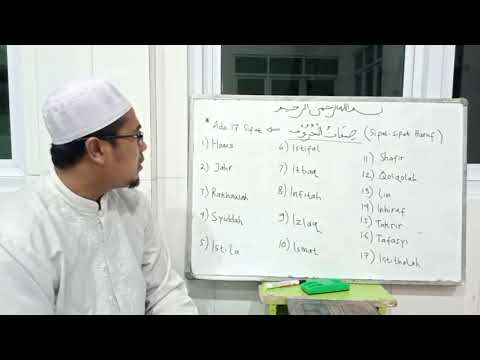 بسم الله الرحمن الرحيم
* Ada 17 Sifat ⇐ صِفَاتُ الْحُرُوْفِ (Sipat-Sipat Huruf)
1) Hams
2) Jahr
3) Rakhawah
4) Syiddah
5) Isti'la
6) Istifal
7) Itbaq
8) Infitah
9) Izlaq
10) Ismat
11) Shofir
12) Qolqolah
13) Lin
14) Inhiraf
15) Takrir
16) Tafasyi
17) Istitholah